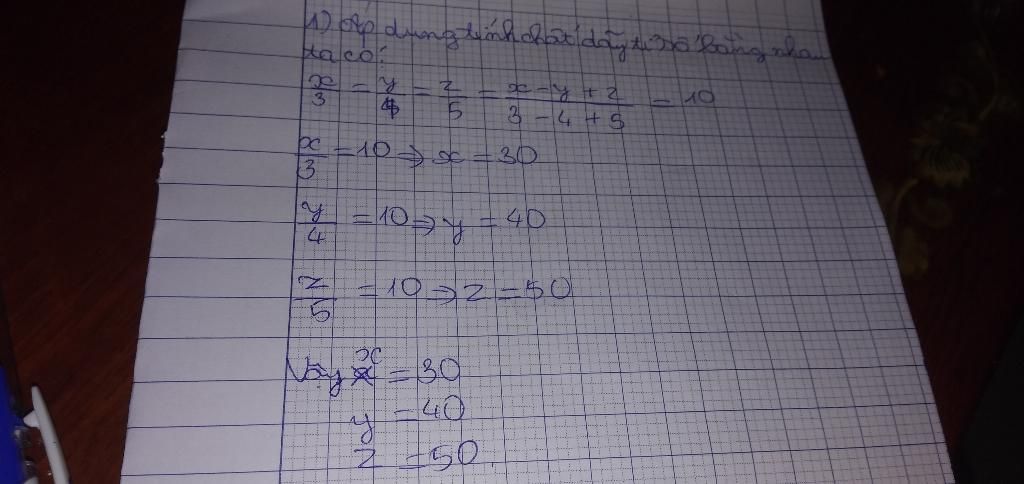 1) Áp dụng tính chất dãy tỉ số bằng nhau
ta có:
x/3 = y/4 = z/5 = (x - y + z)/(3 - 4 + 5) = 10
x/3 = 10 ⇒ x = 30
y/4 = 10 ⇒ y = 40
z/5 = 10 ⇒ z = 50
Vậy x = 30
y = 40
z = 50